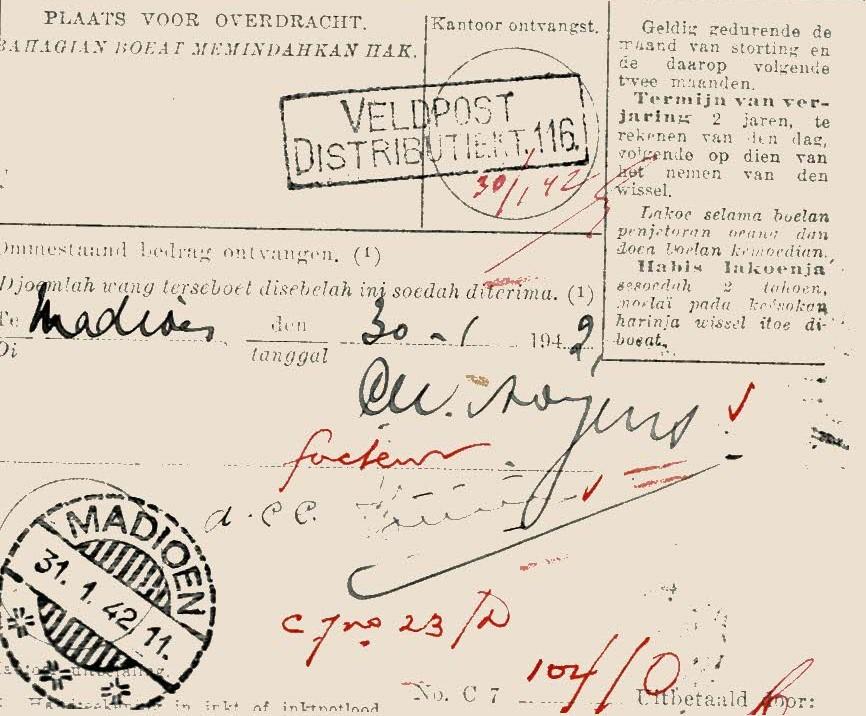 PLAATS VOOR OVERDRACHT.
BAHAGIAN BOEAT MEMINDAHKAN HAK.
Kantoor ontvangst.
VELDPOST
DISTRIBUTIEKT.116.
30/1 42
Geldig gedurende de
maand van storting en
de daarop volgende
twee maanden.
Termijn van ver-
jaring 2 jaren, te
rekenen van den dag,
volgende op dien van
het nemen van den
wissel.
Lakoe selama boelan
penjetoran oeang dan
doea boelan kemoedian.
Habis lakoenja
sesoedah 2 tahoen,
moelaï pada keësokan
harinja wissel itoe di-
boeat.
Ommestaand bedrag ontvangen. (1)
Djoemlah wang terseboet disebelah ini soedah diterima. (1)
Te Madioen den 30 - 1 1942
Di tanggal
facteur
MADIOEN
31. 1. 42 11.
23/
104/
Handteekening in inkt of inktpotlood
No. C 7
Uitbetaald door: